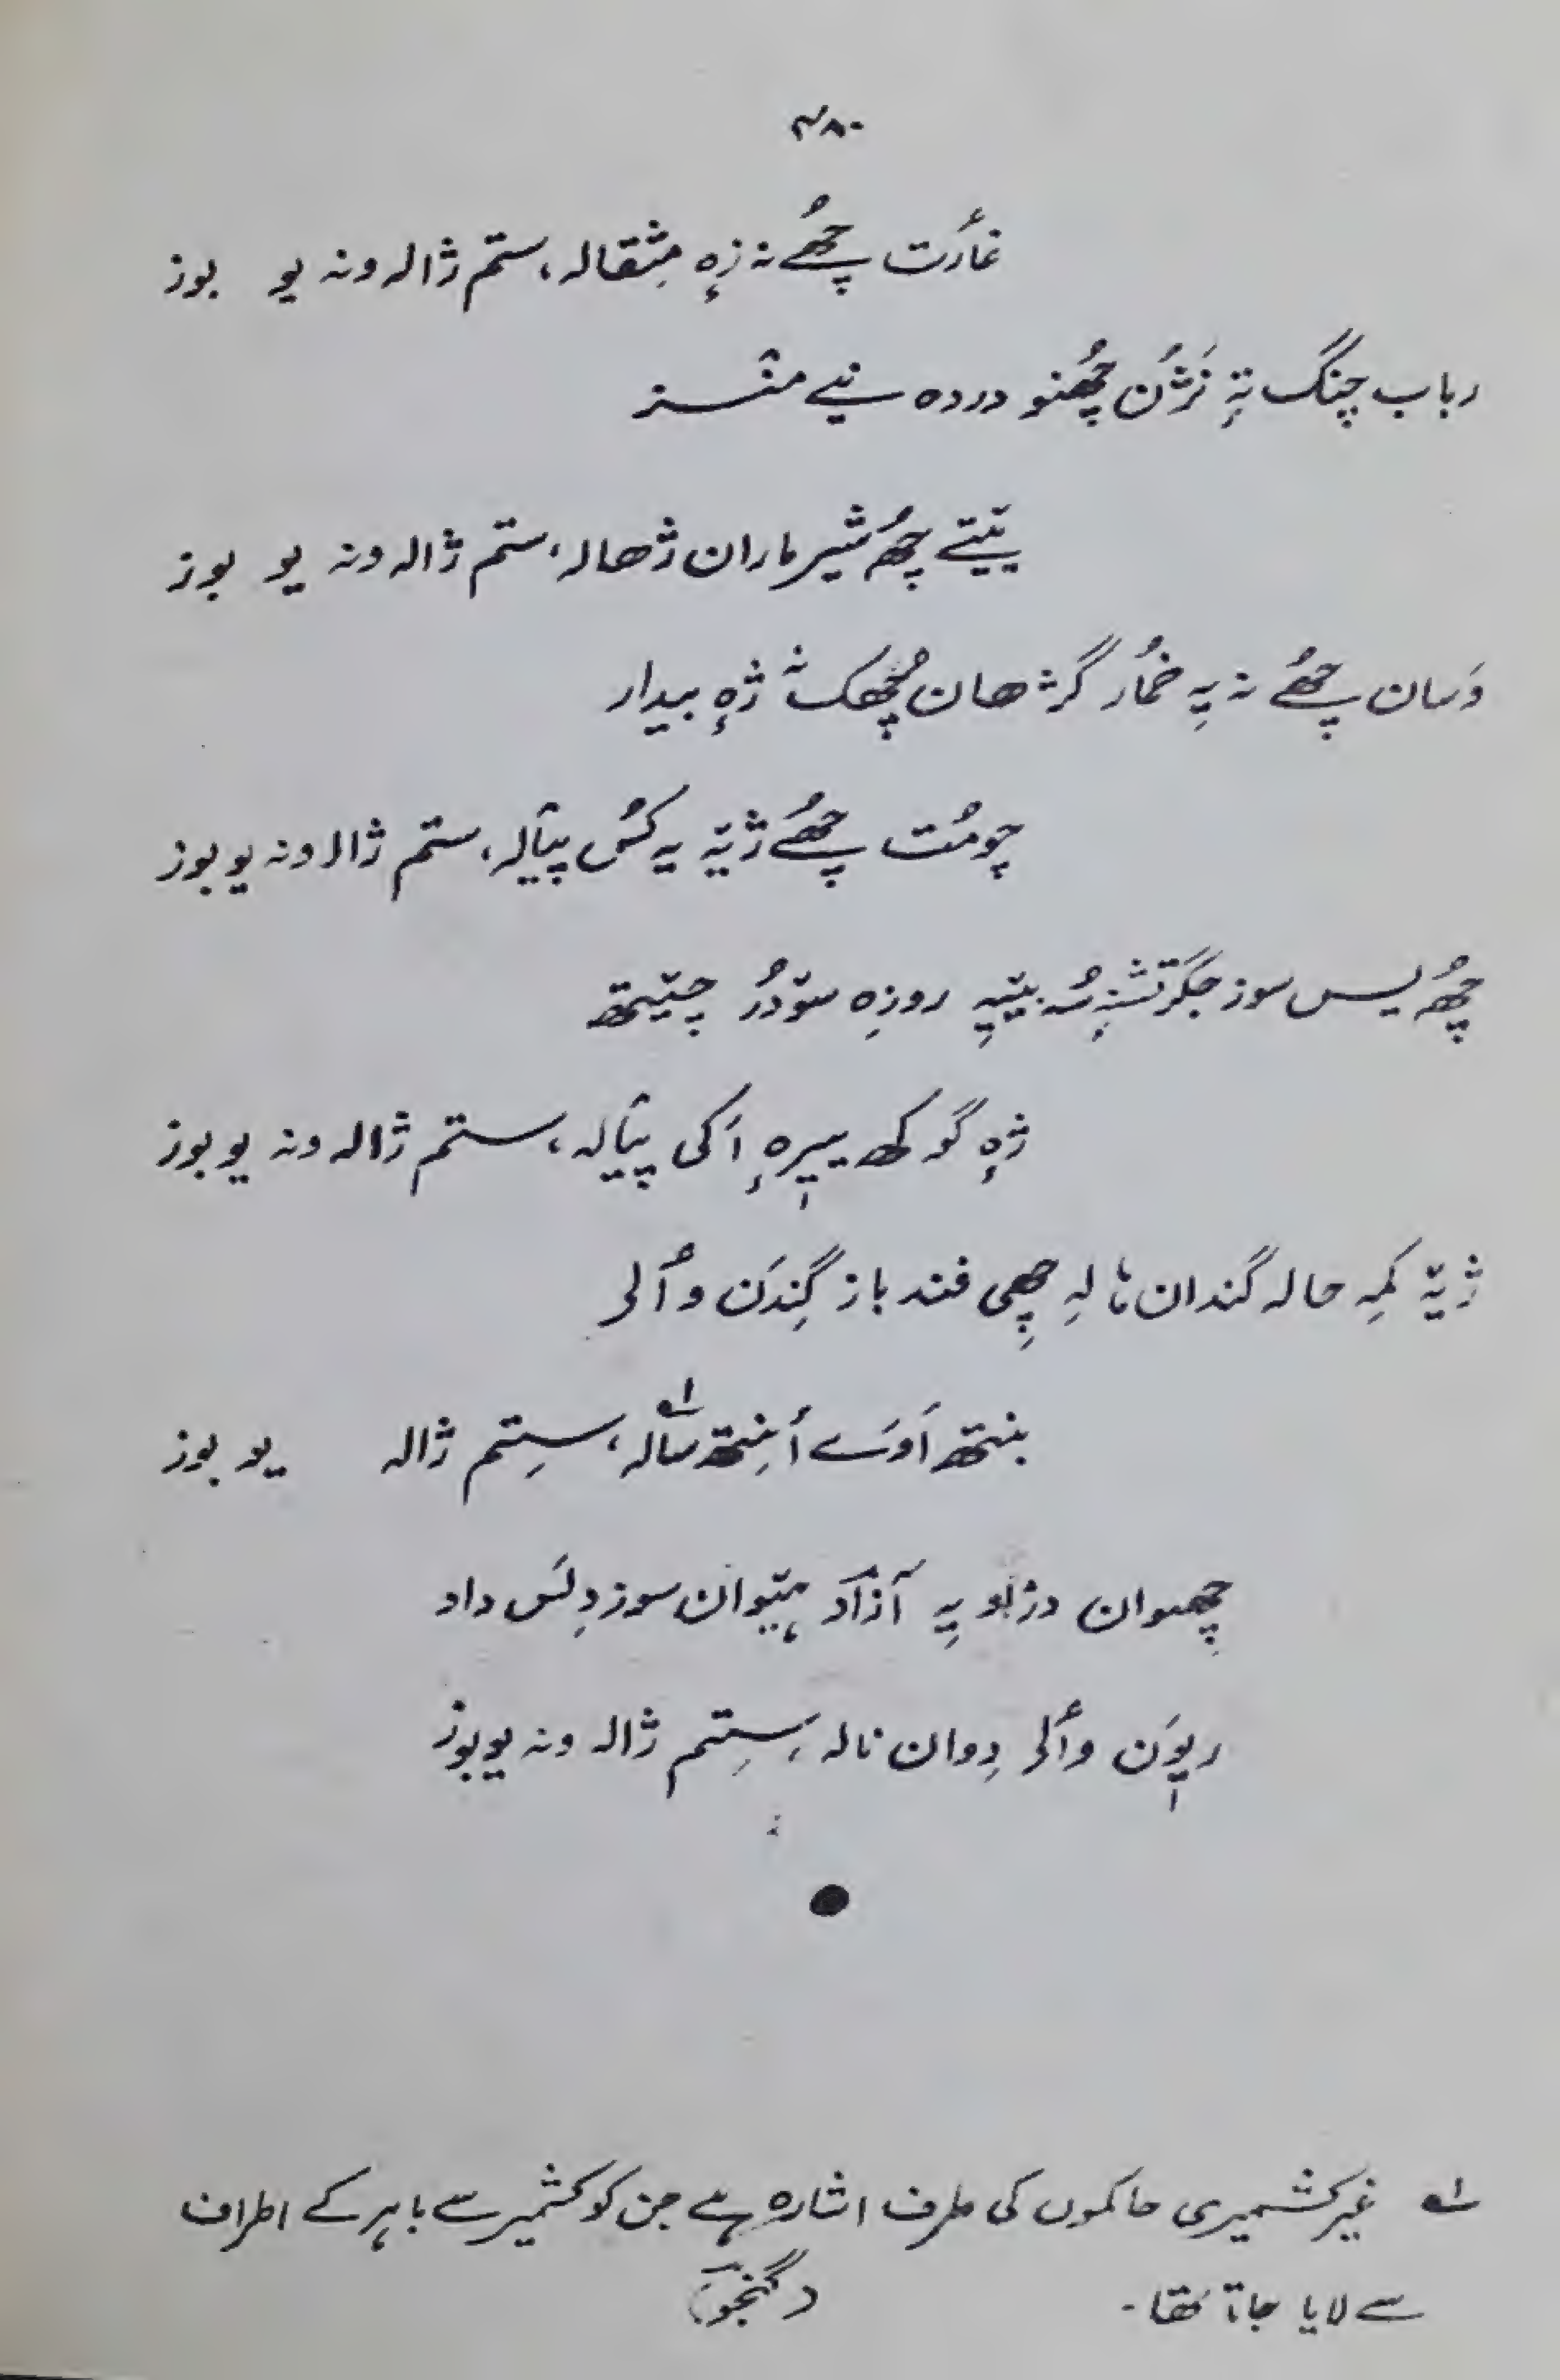 ۴۸۰
غأرت چھُے نہ زٕہ مِثقالہ، ستم ژالہ ونہ یو بوز
رباب چنگ تہٕ نَژُن چھُنو دردہ نیے منٛز
یَتیتے چھُ شیر ماران ژھالہ، ستم ژالہ ونہ یو بوز
وَسان چھُے نہ یہِ خمُار گژھان چھُکھ نہٕ ژٕہ بیدار
چومُت چھُے ژیہِ یہ کسُ پیالہ، ستم ژالہ ونہ یو بوز
چھُ یس سوز جگر تشنہٕ سُہ بییہِ روزِہ سودُر چیتھ
ژٕہ گوکھ سیرٕہ اَکی پیالہ، ستم ژالہ ونہ یو بوز
ژیہِ کَمِہ حالہ گندان نالہِ چھِی فند باز گِندَن وألر
بنتھ اَوَرے أنِتھ سالہ، سِتم ژالہ یو بوز
چھوان درٛاو یہِ آزاد ہیتوان سوز دِلَس داد
رپوَن وألر دِوان نالہ، سِتم ژالہ ونہ یو بوز
لہ غیر کشمیری حاکموں کی طرف اشارہ ہے جن کو کشمیر سے باہر کے اطراف
سے لایا جاتا تھا۔ (گنجو)